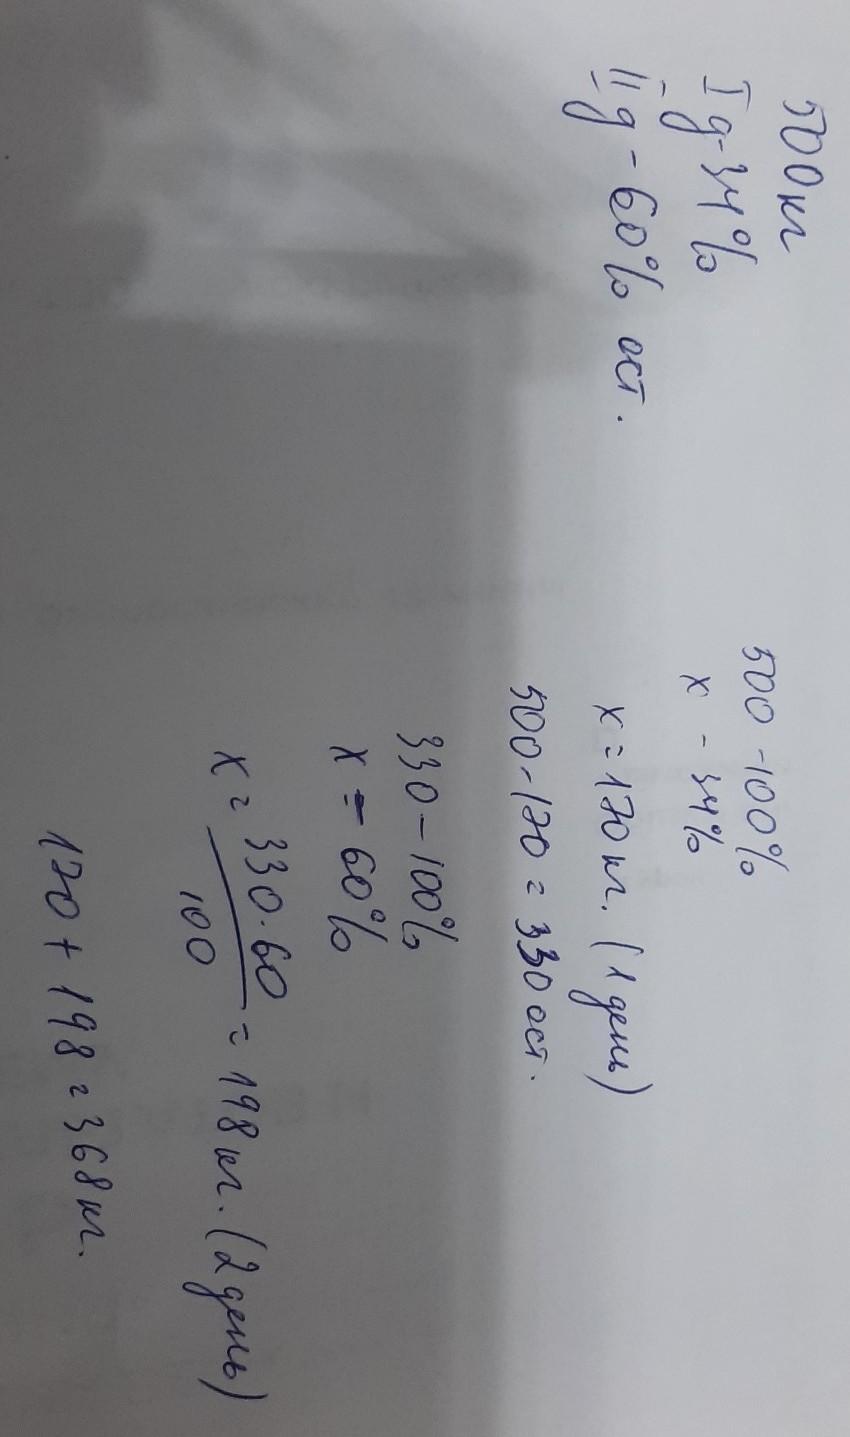 500 кг
I д - 34%
II д - 60% ост.
500 - 100%
х - 34%
х = 170 кг. (1 день)
500 - 170 = 330 ост.
330 - 100%
х = 60%
х = 330 · 60 / 100 = 198 кг. (2 день)
170 + 198 = 368 кг.